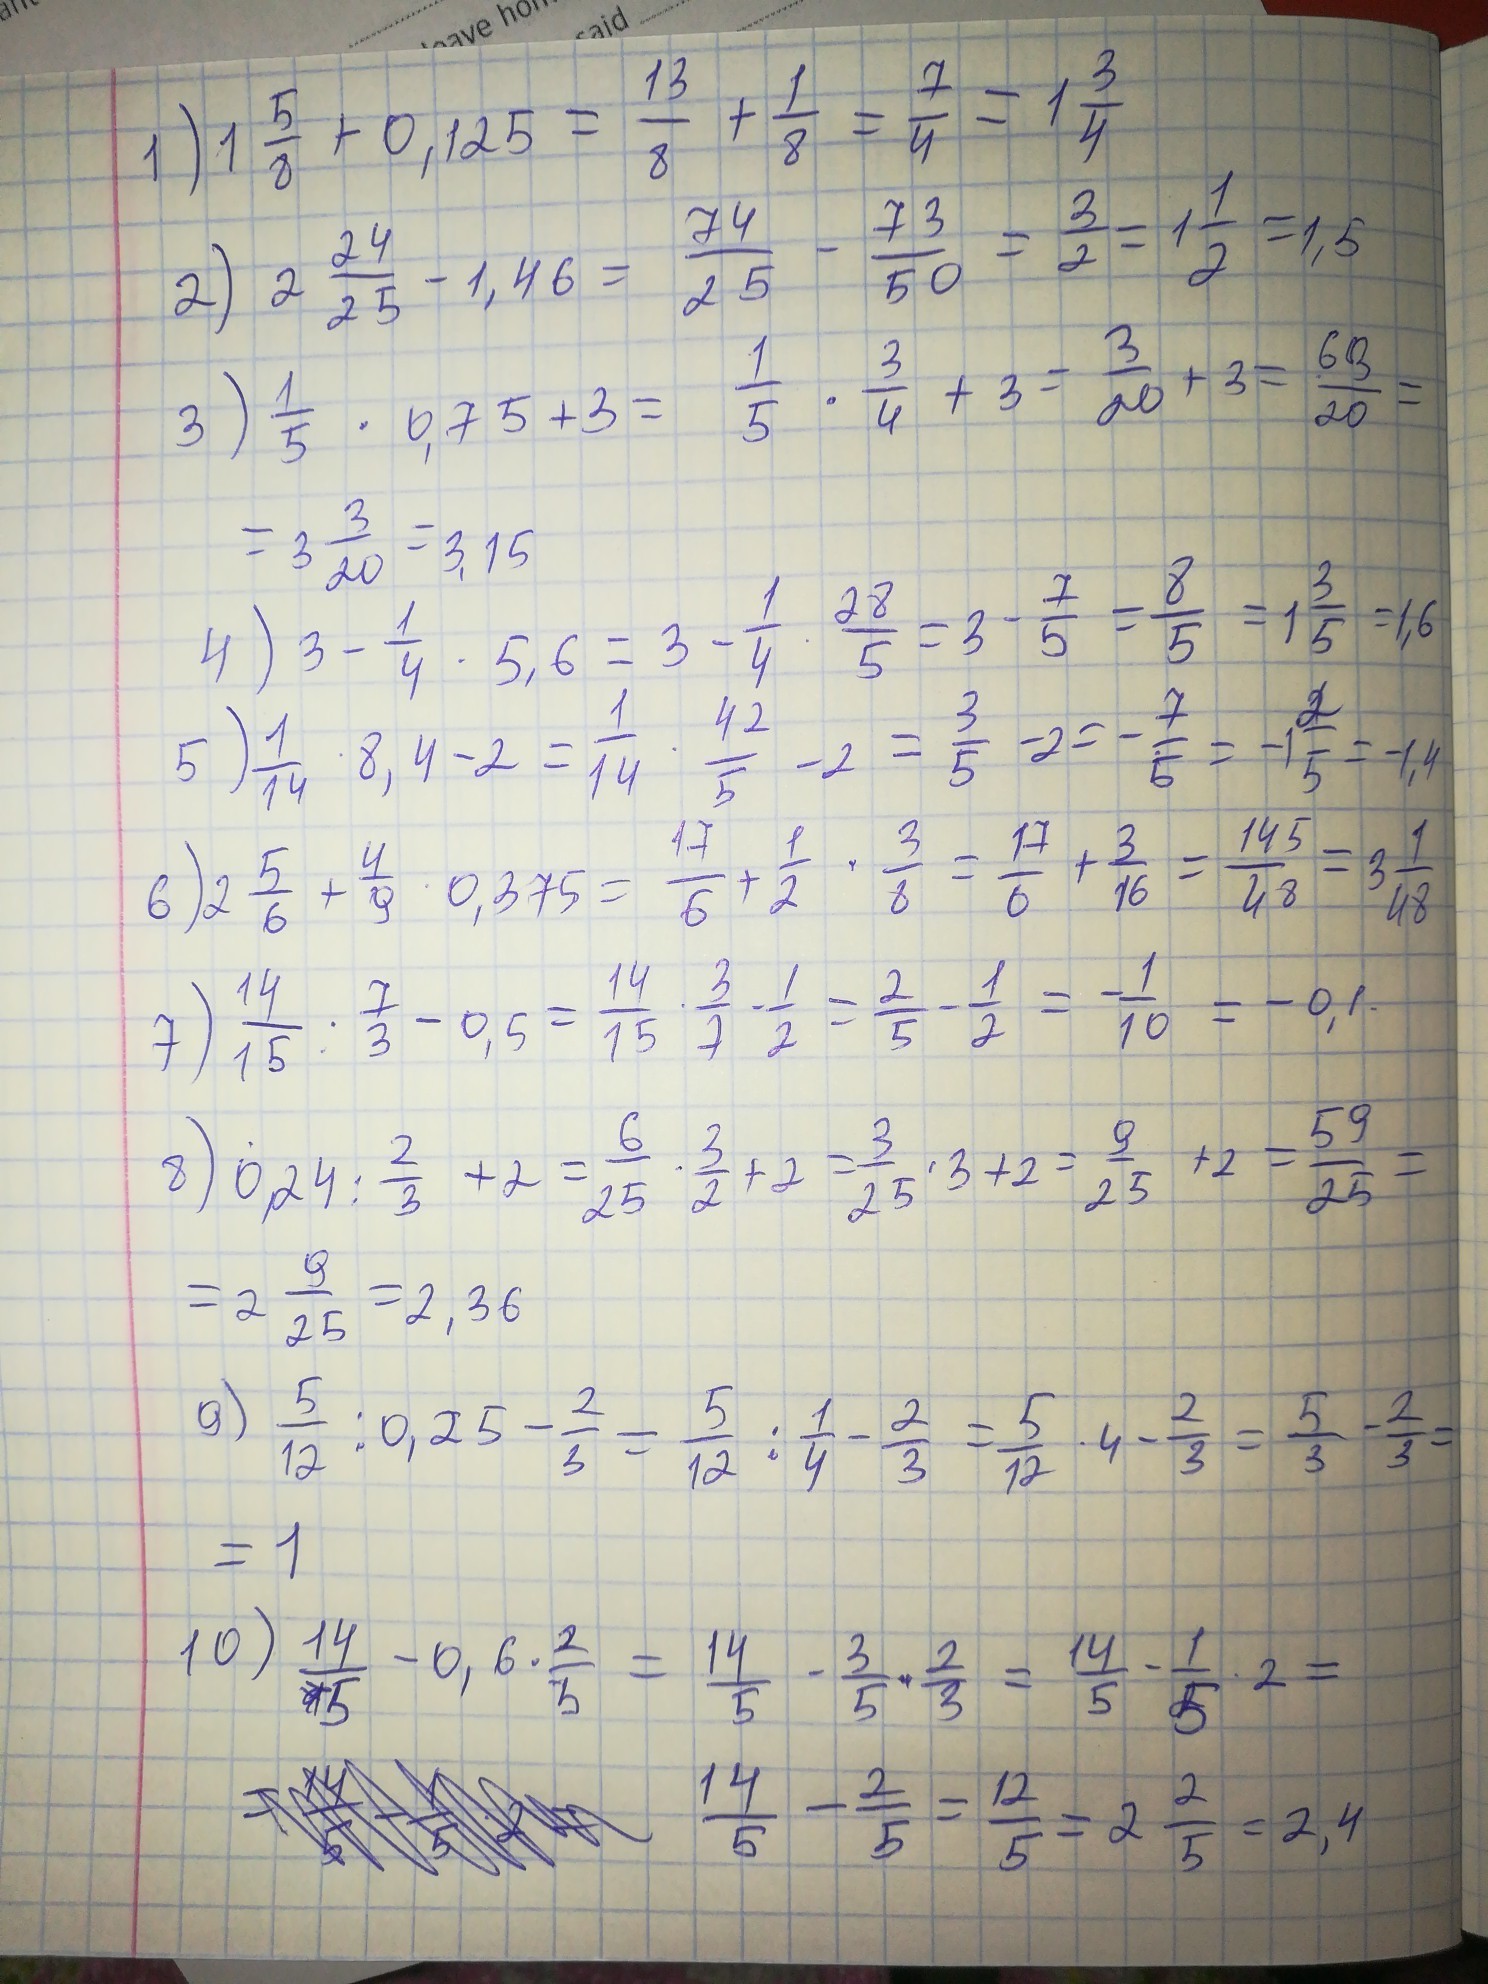 leave hom
said
1) 1 5/8 + 0,125 = 13/8 + 1/8 = 7/4 = 1 3/4
2) 2 24/25 - 1,46 = 74/25 - 73/50 = 3/2 = 1 1/2 = 1,5
3) 1/5 · 0,75 + 3 = 1/5 · 3/4 + 3 = 3/20 + 3 = 63/20 =
= 3 3/20 = 3,15
4) 3 - 1/4 · 5,6 = 3 - 1/4 · 28/5 = 3 - 7/5 = 8/5 = 1 3/5 = 1,6
5) 1/14 · 8,4 - 2 = 1/14 · 42/5 - 2 = 3/5 - 2 = - 7/5 = -1 2/5 = -1,4
6) 2 5/6 + 4/9 · 0,375 = 17/6 + 1/2 · 3/8 = 17/6 + 3/16 = 145/48 = 3 1/48
7) 14/15 : 7/3 - 0,5 = 14/15 · 3/7 - 1/2 = 2/5 - 1/2 = - 1/10 = - 0,1
8) 0,24 : 2/3 + 2 = 6/25 · 3/2 + 2 = 3/25 · 3 + 2 = 9/25 + 2 = 59/25 =
= 2 9/25 = 2,36
9) 5/12 : 0,25 - 2/3 = 5/12 : 1/4 - 2/3 = 5/12 · 4 - 2/3 = 5/3 - 2/3 =
= 1
10) 14/5 - 0,6 · 2/3 = 14/5 - 3/5 · 2/3 = 14/5 - 1/5 · 2 =
14/5 - 2/5 = 12/5 = 2 2/5 = 2,4